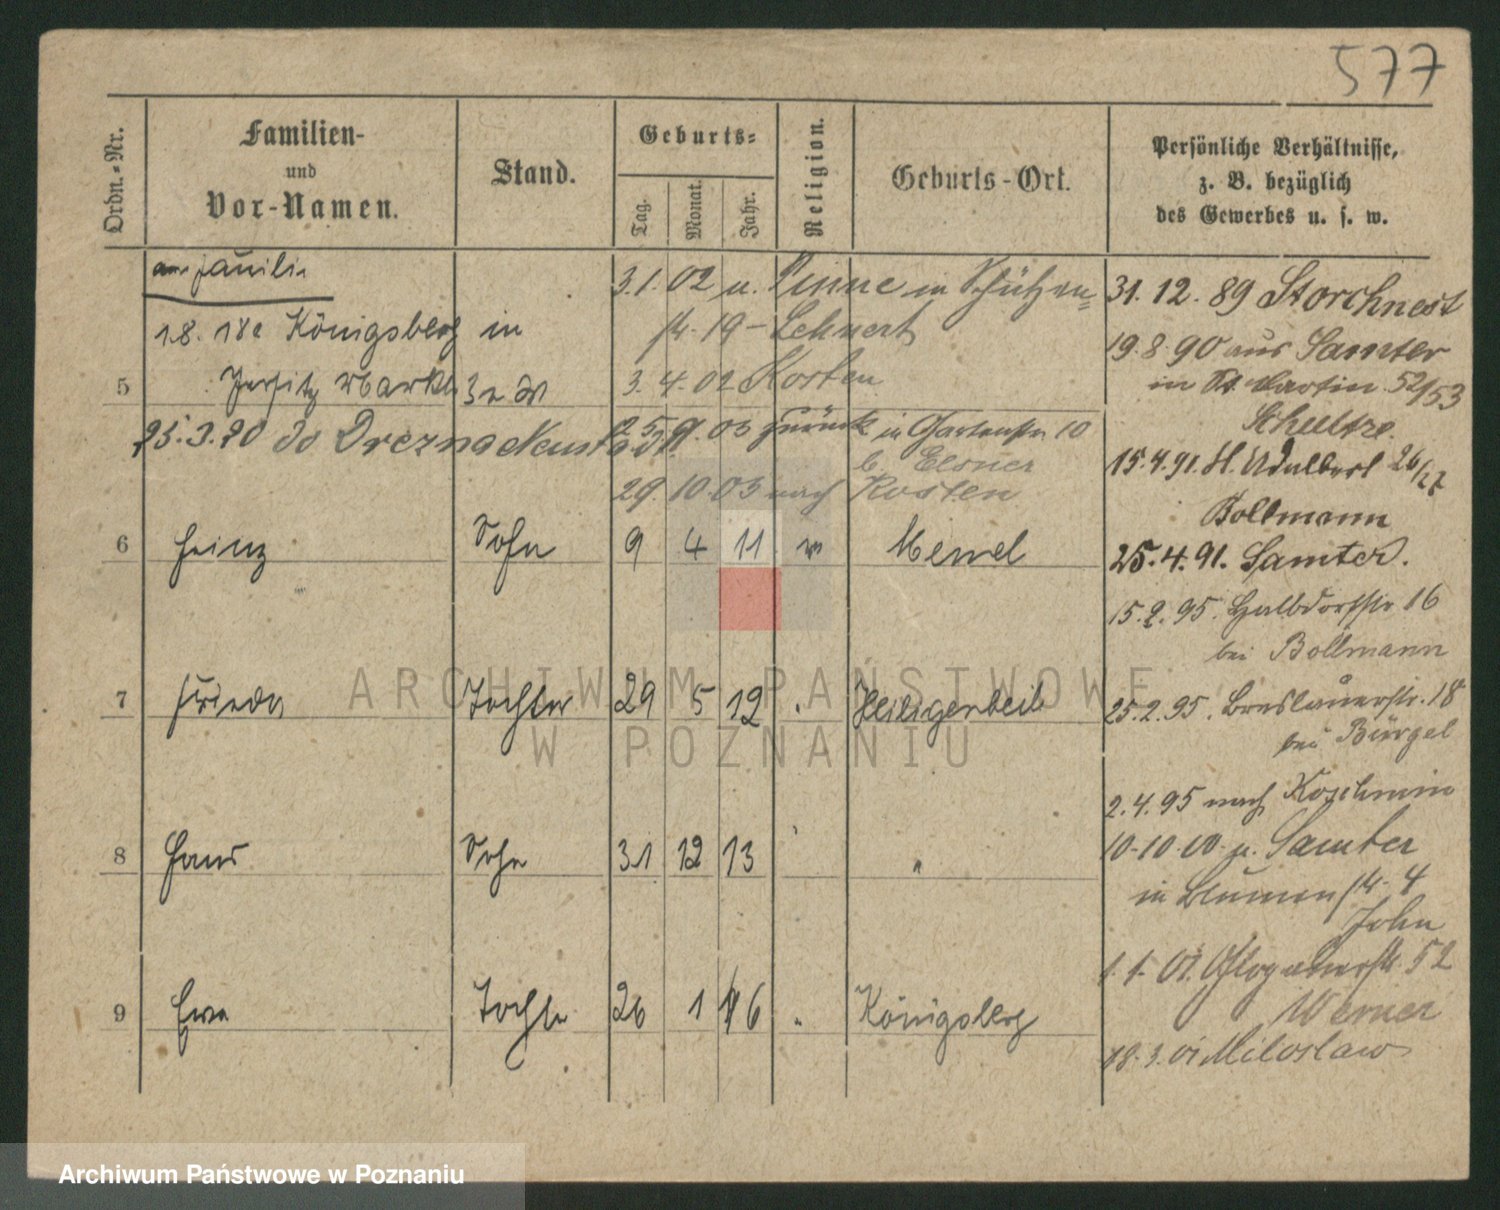 577
Ordn.-Nr.
Familien-
und
Vor-Namen.
Stand.
Geburts-
Tag.
Monat.
Jahr.
Religion.
Geburts-Ort.
Persönliche Verhältnisse,
z. B. bezüglich
des Gewerbes u. s. w.
3.1. 02 u. Pinne in Schützen=
str. 19 - Lehnert
3. 4. 02 Kosten
Königsberg in
5
25.3.20 do Drezna Neustadt
03 zurück in Gartenstr. 10
b. Elsner
29. 10. 03 nach Kosten
6 Heinz Sohn 9 4 11 Memel
7 Frieda Tochter 29 5 12 Heiligenbeil
8 Hans Sohn 31 12 13 "
9 Ewa Tochter 26 1 16 Königsberg
31. 12. 89 Storchnest
19. 8. 90 aus Samter
in St Martin 52/53
Schultze.
15. 4. 91. St. Adalbert 26/27
Bollmann
25. 4. 91. Samter.
15. 2. 95. Halbdorfstr. 16
bei Bollmann
25. 2. 95. Breslauerstr. 18
bei Bürgel
2. 4. 95 nach Koschmin
10. 10. 00 u. Samter
in Blumenstr. 4
John
1. 1. 01. Glogauerstr. 52
Werner
18. 3. 01 Miloslaw
ARCHIWUM PAŃSTWOWE
W POZNANIU
Archiwum Państwowe w Poznaniu